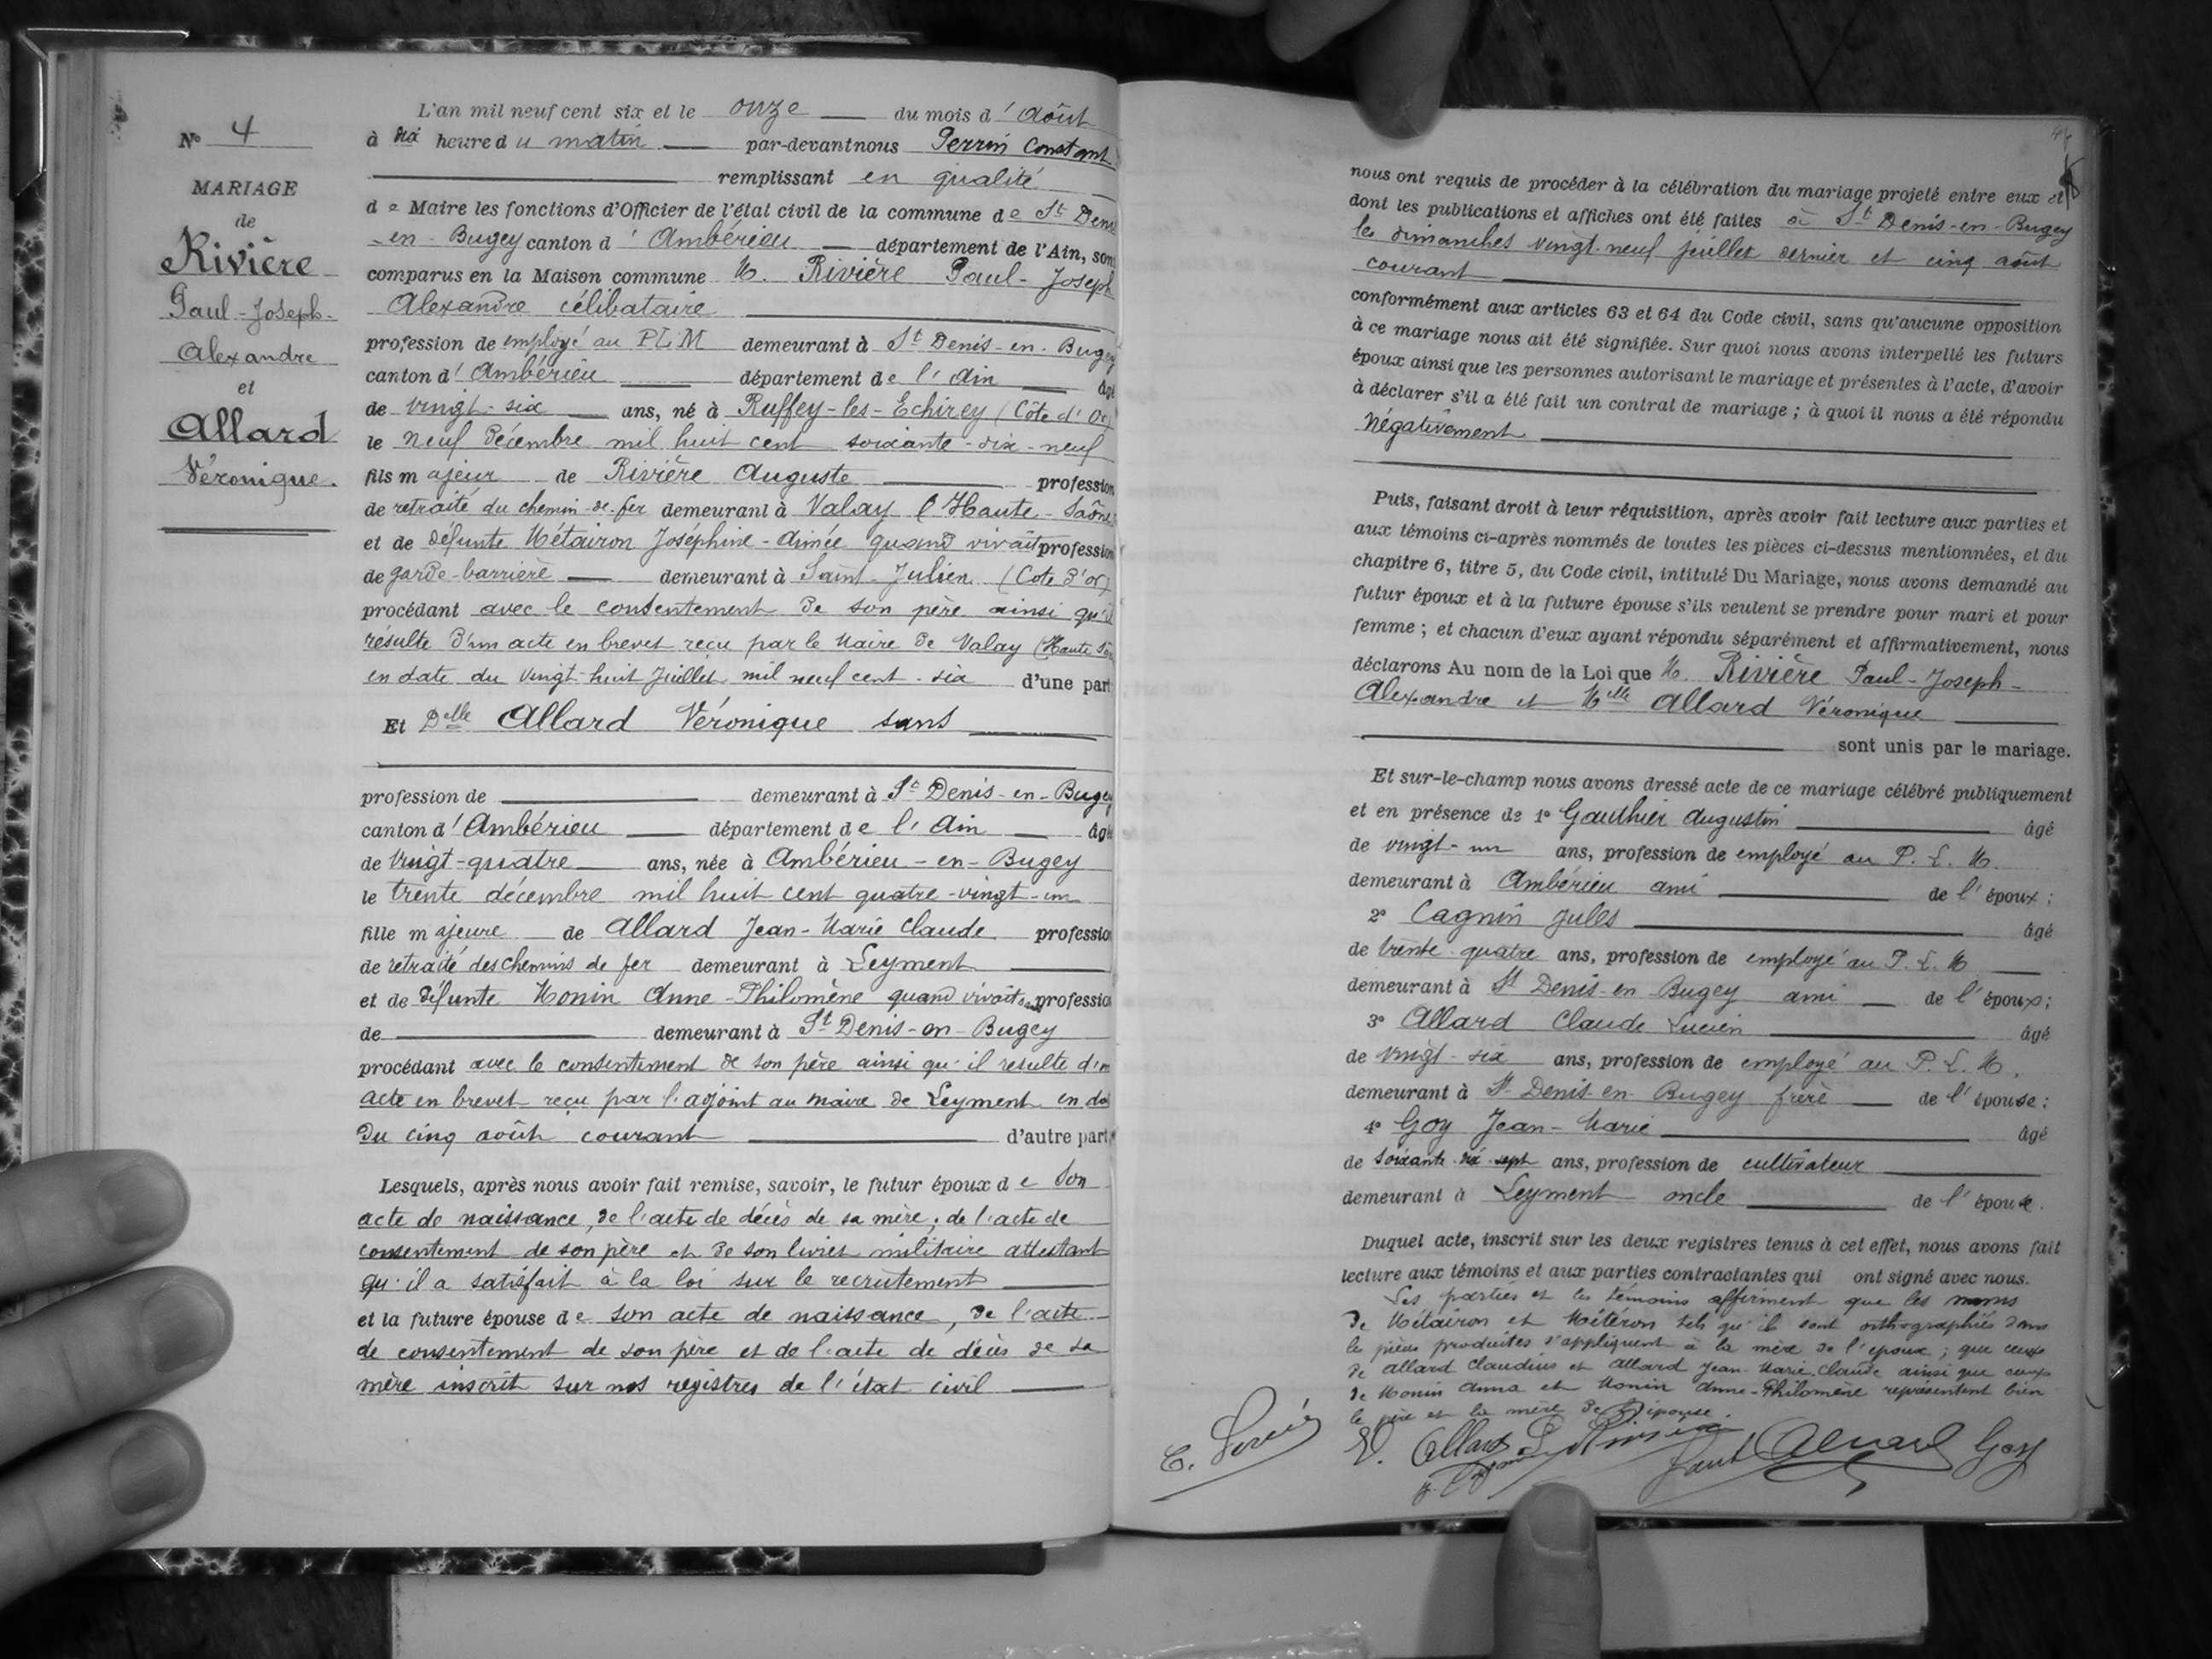 N° 4
MARIAGE
de
Rivière
Paul-Joseph-
Alexandre
et
Allard
Véronique.
L'an mil neuf cent six et le onze du mois d'Août
à dix heure du matin par-devant nous Perrin Constant
remplissant en qualité
de Maire les fonctions d'Officier de l'état civil de la commune de St Denis
-en-Bugey canton d'Ambérieu département de l'Ain, sont
comparus en la Maison commune M. Rivière Paul-Joseph
Alexandre célibataire
profession de employé au PLM demeurant à St Denis-en-Bugey
canton d'Ambérieu département de l'Ain âgé
de vingt-six ans, né à Ruffey-les-Echirey (Côte d'Or)
le neuf Décembre mil huit cent soixante-dix-neuf
fils majeur de Rivière Auguste profession
de retraité du chemin-de-fer demeurant à Valay (Haute-Saône)
et de défunte Métairon Joséphine-Aimée quand vivait profession
de garde-barrière demeurant à Saint-Julien (Cote d'or)
procédant avec le consentement de son père ainsi qu'il
résulte d'un acte en brevet reçu par le Maire de Valay (Haute
en date du vingt-huit Juillet mil neuf cent-six d'une part
Et Delle Allard Véronique sans
profession de demeurant à St Denis-en-Bugey
canton d'Ambérieu département de l'Ain âgé
de vingt-quatre ans, née à Ambérieu-en-Bugey
le trente décembre mil huit cent quatre-vingt-un
fille majeure de Allard Jean-Marie Claude profession
de retraité des chemins de fer demeurant à Leyment
et de défunte Monin Anne-Philomène quand vivait sans profession
de demeurant à St Denis-en-Bugey
procédant avec le consentement de son père ainsi qu'il résulte d'un
acte en brevet reçu par l'adjoint au maire de Leyment en date
du cinq août courant d'autre part,
Lesquels, après nous avoir fait remise, savoir, le futur époux de son
acte de naissance, de l'acte de décès de sa mère; de l'acte de
consentement de son père et de son livret militaire attestant
qu'il a satisfait à la loi sur le recrutement
et la future épouse de son acte de naissance, de l'acte
de consentement de son père et de l'acte de décès de sa
mère inscrit sur nos registres de l'état civil
nous ont requis de procéder à la célébration du mariage projeté entre eux et
dont les publications et affiches ont été faites à St Denis-en-Bugey
les dimanches vingt-neuf juillet dernier et cinq août
courant
conformément aux articles 63 et 64 du Code civil, sans qu'aucune opposition
à ce mariage nous ait été signifiée. Sur quoi nous avons interpellé les futurs
époux ainsi que les personnes autorisant le mariage et présentes à l'acte, d'avoir
à déclarer s'il a été fait un contrat de mariage; à quoi il nous a été répondu
Négativement
Puis, faisant droit à leur réquisition, après avoir fait lecture aux parties et
aux témoins ci-après nommés de toutes les pièces ci-dessus mentionnées, et du
chapitre 6, titre 5, du Code civil, intitulé Du Mariage, nous avons demandé au
futur époux et à la future épouse s'ils veulent se prendre pour mari et pour
femme; et chacun d'eux ayant répondu séparément et affirmativement, nous
déclarons Au nom de la Loi que M. Rivière Paul-Joseph-
Alexandre et Mlle Allard Véronique
sont unis par le mariage.
Et sur-le-champ nous avons dressé acte de ce mariage célébré publiquement
et en présence de 1° Gauthier Augustin âgé
de vingt-un ans, profession de employé au P.L.M.
demeurant à Ambérieu ami de l'époux;
2° Cagnin Jules âgé
de trente-quatre ans, profession de employé au P.L.M
demeurant à St Denis-en Bugey ami de l'époux;
3° Allard Claude Lucien âgé
de vingt-six ans, profession de employé au P.L.M.
demeurant à St Denis-en-Bugey frère de l'épouse;
4° Goy Jean-Marie âgé
de soixante dix-sept ans, profession de cultivateur
demeurant à Leyment oncle de l'épouse.
Duquel acte, inscrit sur les deux registres tenus à cet effet, nous avons fait
lecture aux témoins et aux parties contractantes qui ont signé avec nous.
Les parties et les témoins affirment que les noms
de Métairon et Mitéron tels qu'ils sont orthographiés dans
les pièces produites s'appliquent à la mère de l'époux; que ceux
de Allard Claudius et Allard Jean-Marie Claude ainsi que ceux
de Monin Anna et Monin Anne-Philomène représentent bien
le père et la mère de l'épouse.
C. Perrin V. Allard Allard Goy